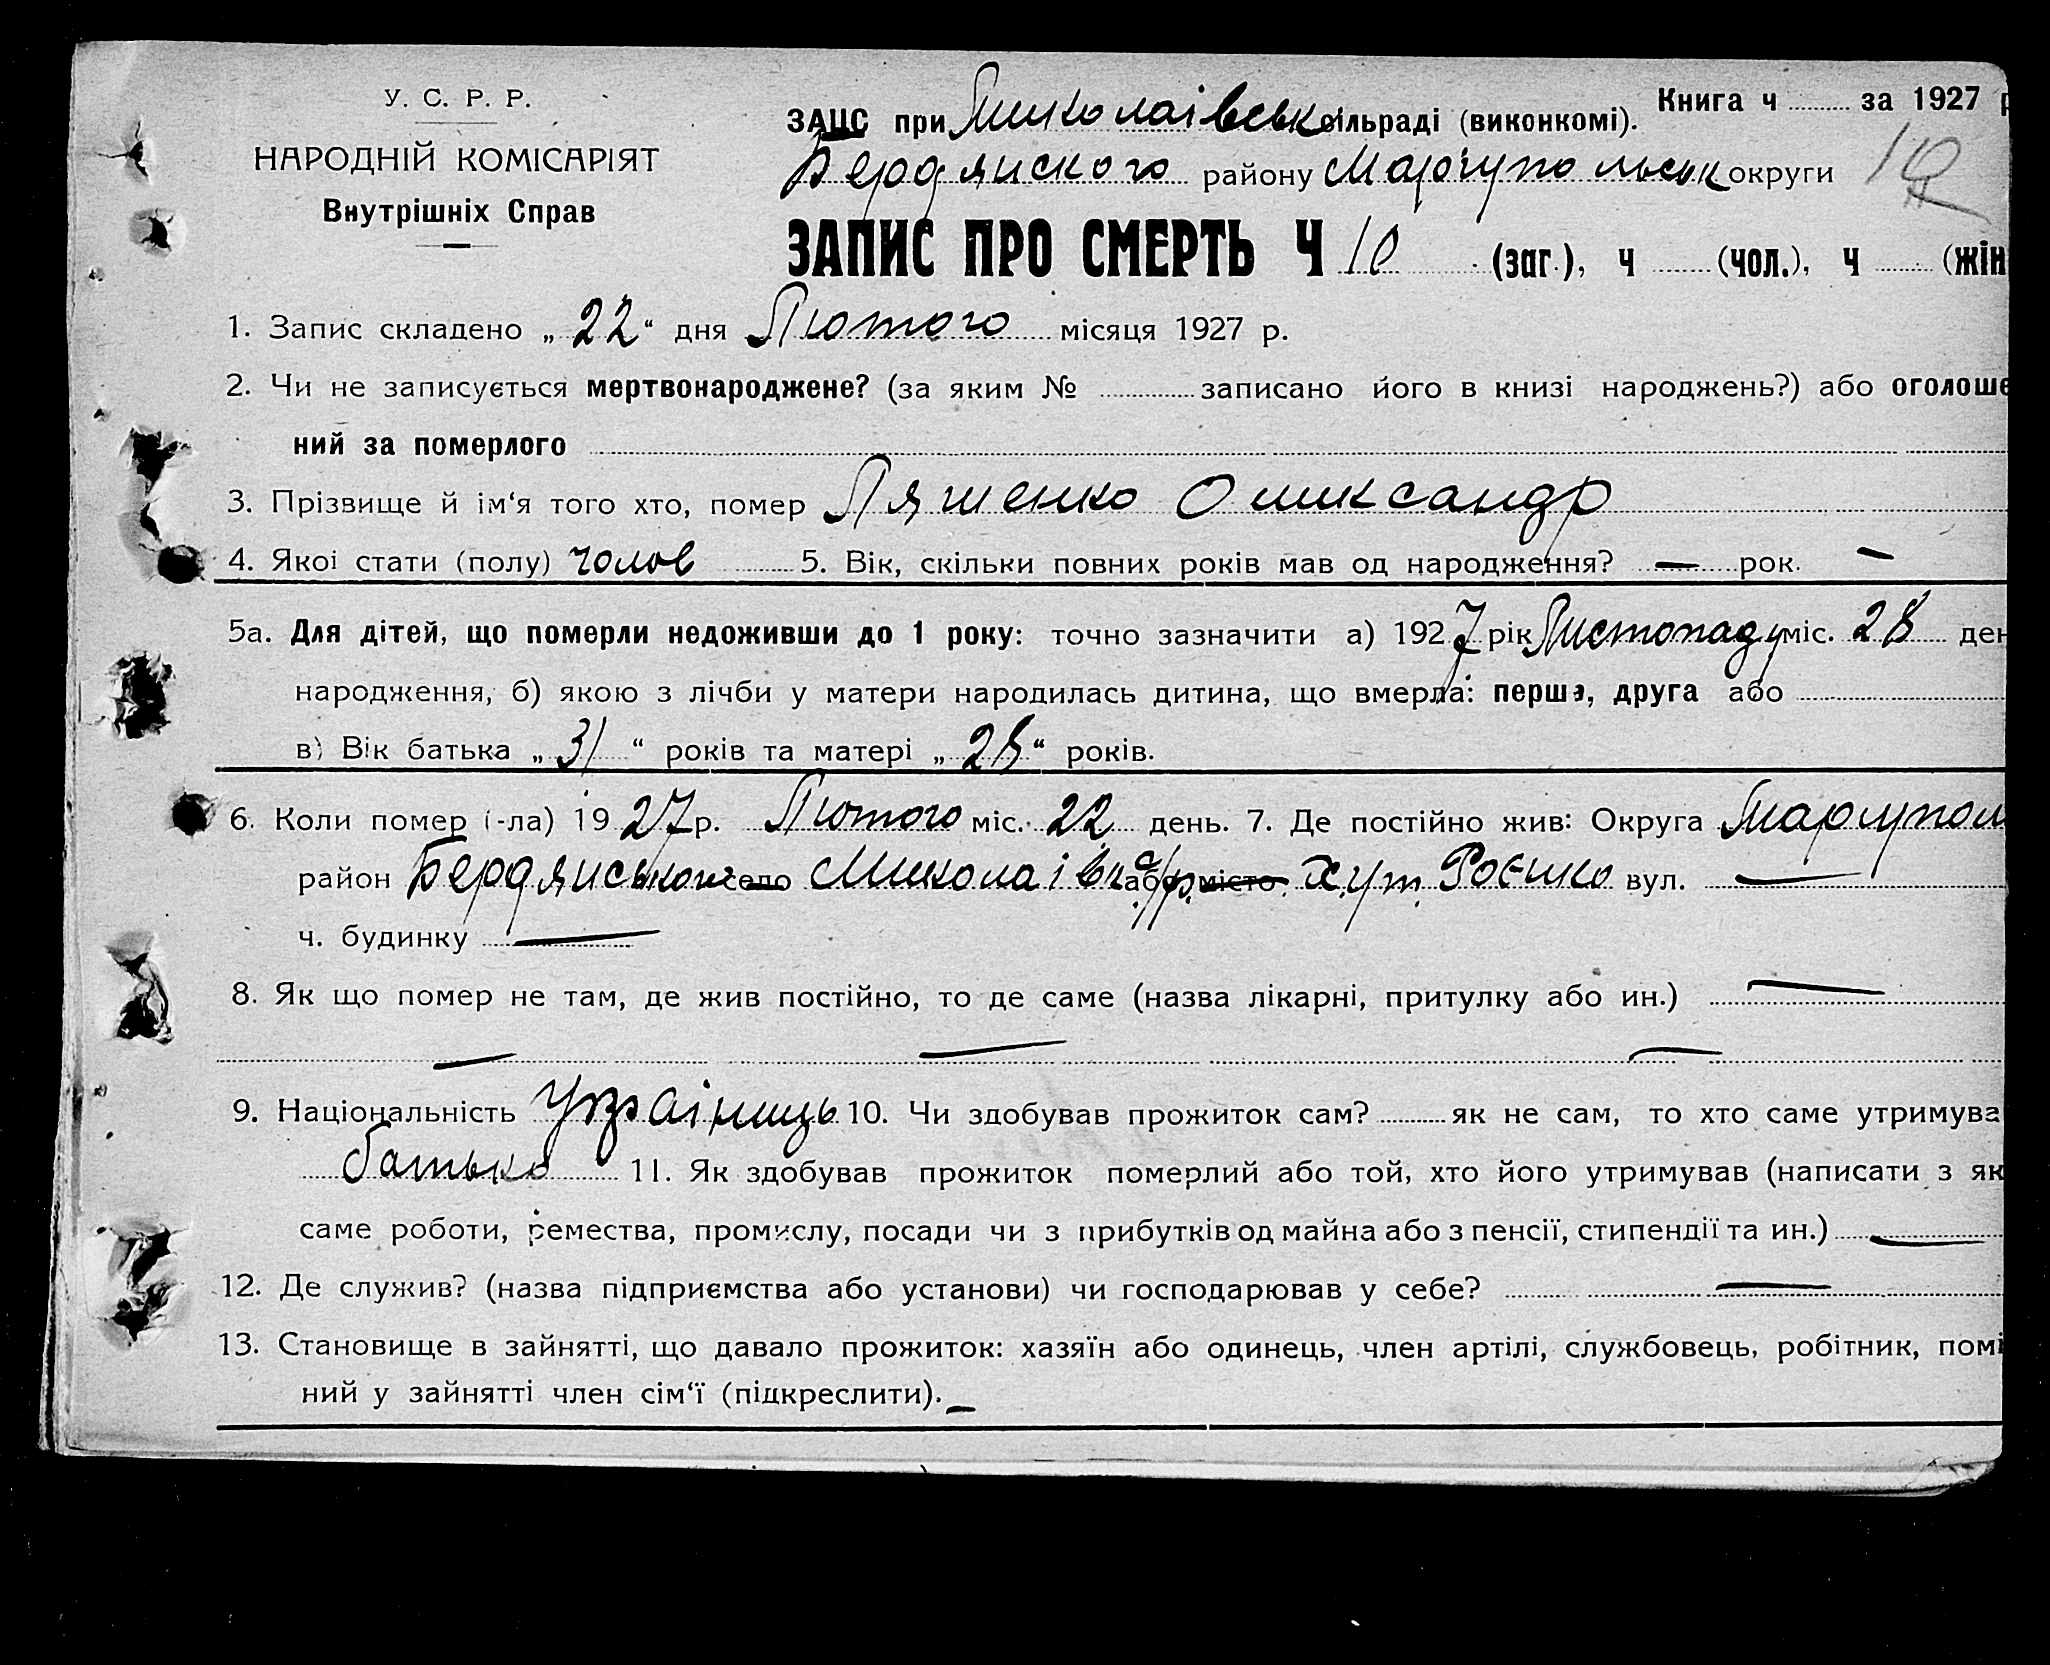 У. С. Р. Р.
НАРОДНІЙ КОМІСАРІЯТ
Внутрішніх Справ
Книга ч за 1927 р
ЗАЦС при Миколаівськ сільраді (виконкомі).
Бердянского району Маріупольськ округи
10
ЗАПИС ПРО СМЕРТЬ Ч 10 (заг.), ч (чол.), ч (жін
1. Запис складено „22“ дня Лютого місяця 1927 р.
2. Чи не записується мертвонароджене? (за яким № записано його в книзі народжень?) або оголоше
ний за померлого
3. Прізвище й ім‘я того хто, помер Ляшенко Олександр
4. Якої стати (полу) чолов 5. Вік, скільки повних років мав од народження? — рок. —
5а. Для дітей, що померли недоживши до 1 року: точно зазначити а) 1927 рік Листопаду міс. 28 ден
народження, б) якою з лічби у матери народилась дитина, що вмерла: перша, друга або
в) Вік батька „31“ років та матері „28“ років.
6. Коли помер (-ла) 1927 р. Лютого міс. 22 день. 7. Де постійно жив: Округа Маріупол
район Бердянською село Миколаівк с/р. або місто хут. Роєнко вул. —
ч. будинку —
8. Як що помер не там, де жив постійно, то де саме (назва лікарні, притулку або ин.) —
— — —
9. Національність Українець 10. Чи здобував прожиток сам? як не сам, то хто саме утримува
батько 11. Як здобував прожиток померлий або той, хто його утримував (написати з як
саме роботи, ремества, промислу, посади чи з прибутків од майна або з пенсії, стипендії та ин.) —
12. Де служив? (назва підприємства або установи) чи господарював у себе? —
13. Становище в зайнятті, що давало прожиток: хазяїн або одинець, член артілі, службовець, робітник, помі
ний у зайнятті член сім‘ї (підкреслити). —